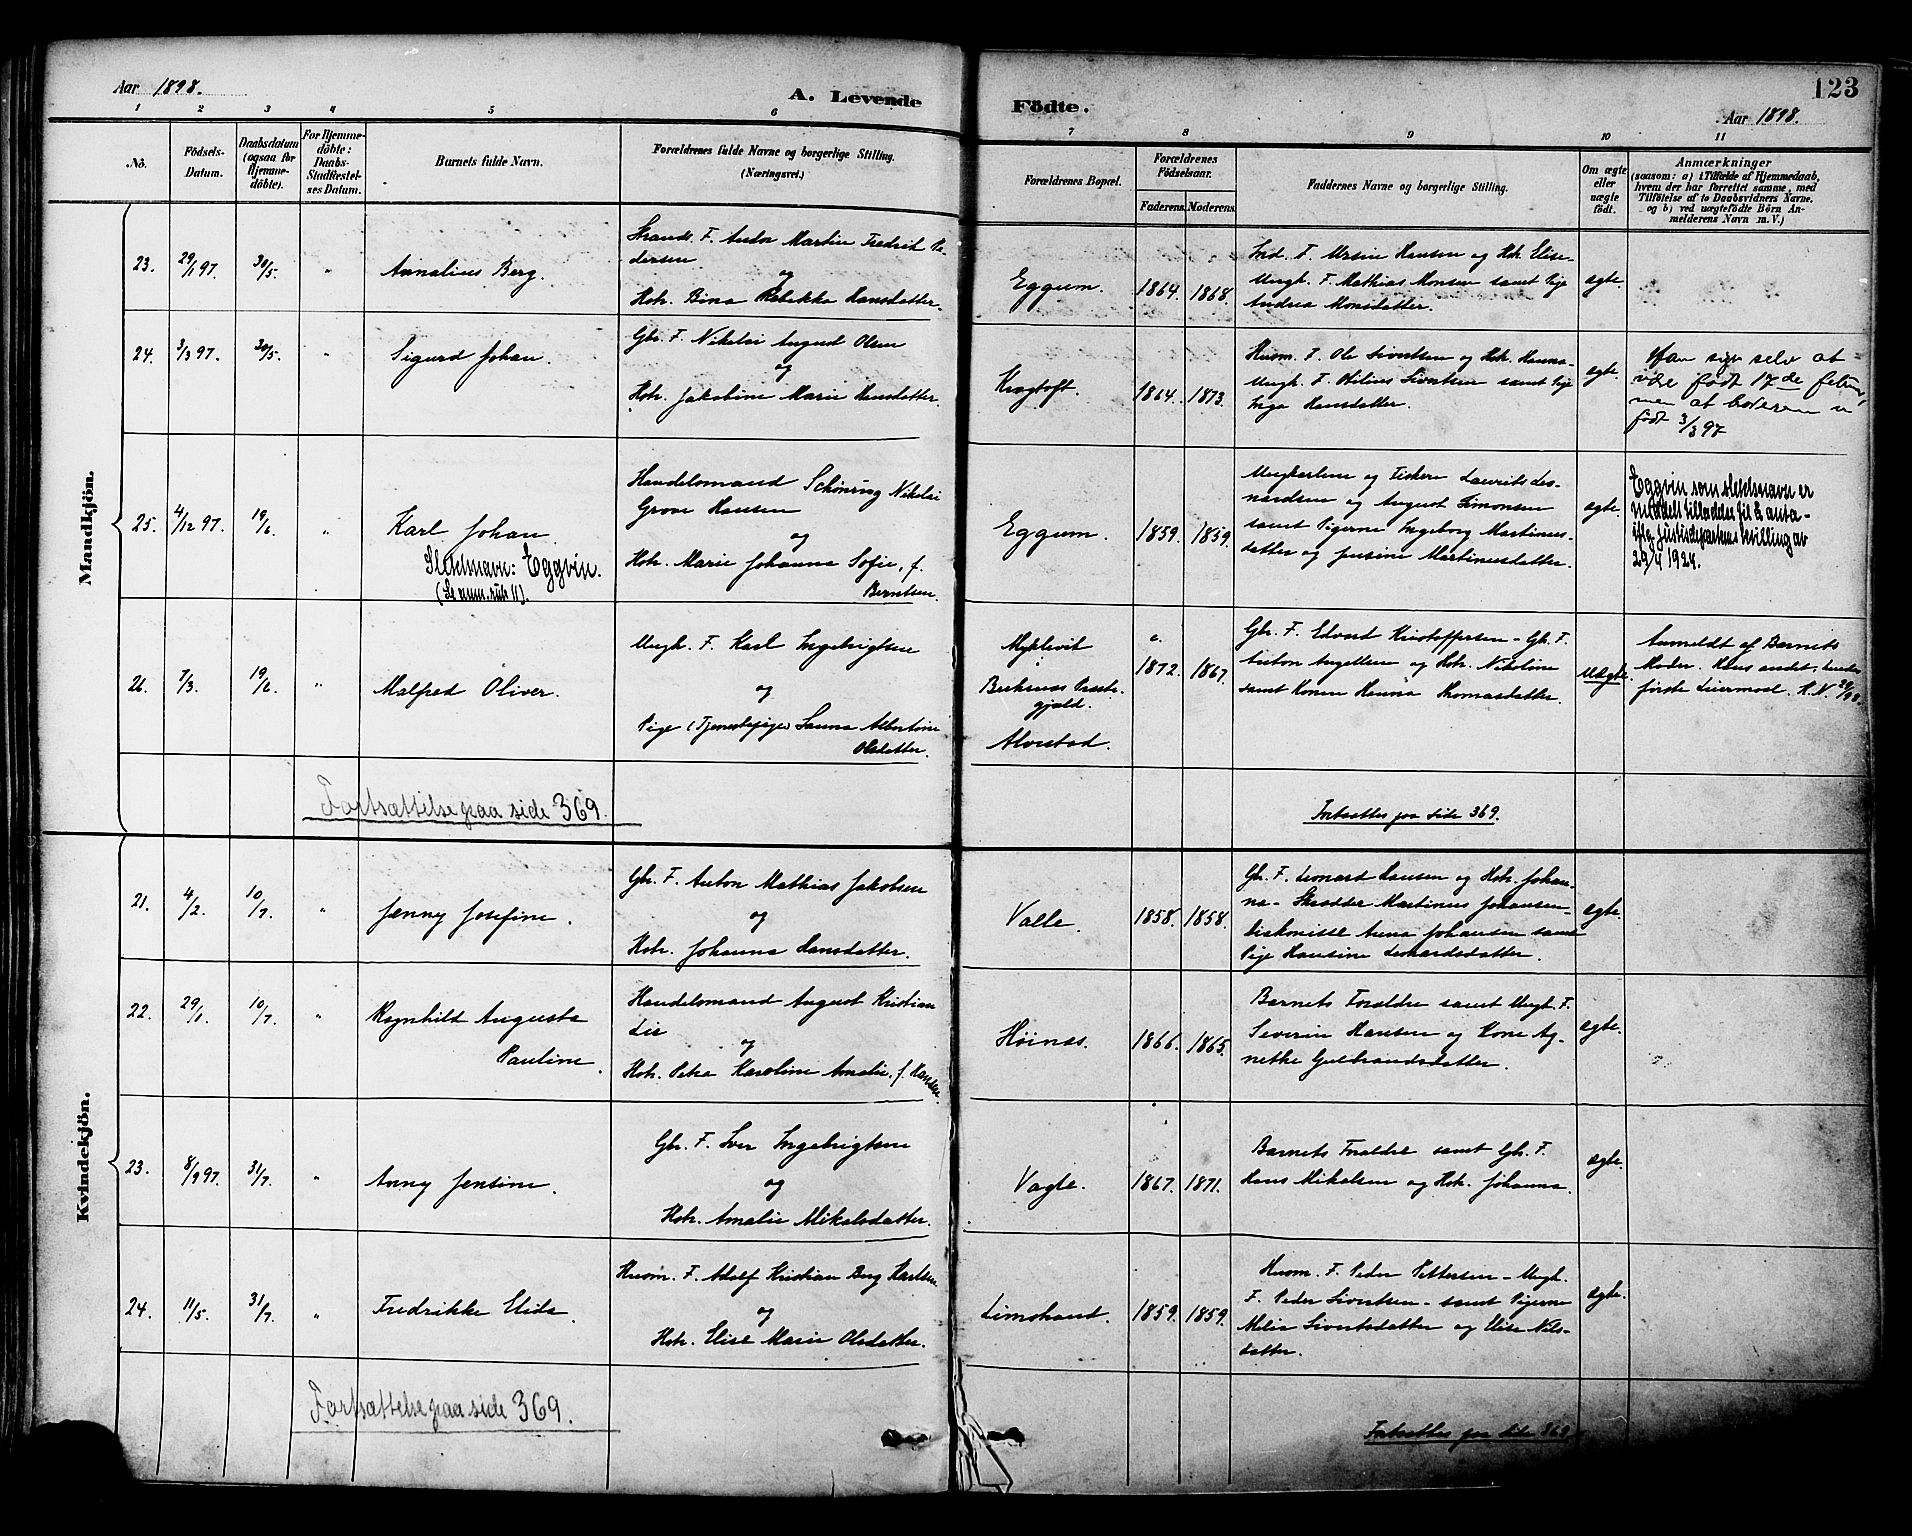 Aar 1898.
A. Levende
Födte.
123
Aar 1898.
1 2 3 4 5 6 7 8 9 10 11
Nö.
Födsels-
Datum.
Daabsdatum
(ogsaa for
Hjemme-
döbte).
For Hjemme-
döbte:
Daabs-
Stadfæstel-
ses Datum.
Barnets fulde Navn.
Forældrenes fulde Navne og borgerlige Stilling.
(Næringsvei.)
Forældrenes Bopæl.
Forældrenes
Födselsaar.
Faderens. Moderens.
Faddernes Navne og borgerlige Stilling.
Om ægte
eller
uægte
födt.
Anmærkninger
(saasom: a) i Tilfælde af Hjemmedaab,
hvem der har forrettet samme, med
Tilföielse af to Daabsvidners Navne.
og b) ved uægtefödte Börn An-
melderens Navn m. V.)
Mandkjön.
23.
29/1 97.
30/5.
"
Annalius Berg.
Strands. F. Anton Martin Fredrik Pe-
dersen
og
Hstr. Bina Rebekka Hansdatter.
Eggum.
1864. 1868.
Ind. F. Ursin Hansen og Hstr. Elise-
Ungk. F. Mathias Monsen samt Pige
Andrea Monsdatter.
ægte.
24.
3/3 97.
30/5.
"
Sigurd Johan.
Gbr. F. Nikolai August Olsen
og
Hstr. Jakobine Marie Hansdatter.
Kragtoft.
1864. 1873.
Husm. F. Ole Sivertsen og Hstr. Hanna-
Ungk. F. Otilius Sivertsen samt Pige
Inga Hansdatter.
ægte.
Han siger selv at
være født 17de februar,
men at boken
født 3/3 97
25.
4/12 97.
19/6.
"
Karl Johan
Slektsnavn: Eggvin.
(Se anm. rub. 11).
Handelsmand Schöning Nikolai
Grove Hansen
og
Hstr. Marie Johanna Sofie, f.
Berntsen.
Eggum.
1859. 1859.
Ungkarlene og Fiskere Laurits Leo-
nardsen og August Simonsen
samt Pigerne Ingeborg Martinus-
datter og Jensine Martinusdatter.
ægte.
Eggvin som slektsnavn er
meddelt tilladelse til å anta
iflg. Justisdepartem. bevilling av
29/4 1924.
26.
7/3.
19/6.
"
Malfred Oliver.
Ungk. F. Karl Ingebrigtsen
og
Pige (Tjenestepige) Sanna Albertine
Olsdatter.
Myklevik
i
Borknes Præste-
gjeld.
Alvestad.
c.
1872. 1867.
Gbr. F. Edvard Kristoffersen - Gbr. F.
Anton Angellsen og Hstr. Nikoline
samt Konen Hanna Thomasdatter.
Uægte.
Anmeldt af Barnets
Moder. Hans andet, hendes
förste Leiermaal. K. N. 20/98.
Fortsættelse paa side 369.
Fortsættes paa side 369.
Kvindekjön.
21.
4/2.
10/7.
"
Jenny Josefine.
Gbr. F. Anton Mathias Jakobsen
og
Hstr. Johanna Hansdatter.
Valle.
1858. 1858.
Gbr. F. Leonard Hansen og Hstr. Johan-
na - Skrædder Martinus Johansen-
Diakonisse Anna Johansen samt
Pige Hansine Leonardsdatter.
ægte.
22.
29/1.
10/7.
"
Ragnhild Augusta
Pauline.
Handelsmand August Kristian
Lie
og
Hstr. Petra Karoline Amalie, f. Hansen.
Höines.
1866. 1865.
Barnets Forældre samt Ungk. F.
Severin Hansen og Kone Ag-
nethe Gulbrandsdatter.
ægte.
23.
8/9 97.
31/7.
"
Anny Jensine.
Gbr. F. Iver Ingebrigtsen
og
Hstr. Amalie Mikalsdatter.
Vagle.
1867. 1871.
Barnets Forældre samt Gbr. F.
Hans Mikalsen og Hstr. Johanna.
ægte.
24.
11/5.
31/7.
"
Fredrikke Elida
Husm. F. Adolf Kristian Berg Karlsen
og
Hstr. Elise Marie Olsdatter.
Limstrand.
1859. 1859.
Husm. F. Peder Pettersen - Ungk.
F. Peder Sivertsen - samt Pigerne
Melia Sivertsdatter og Elise Nils-
datter.
ægte.
Fortsættelse paa side 369.
Fortsættes paa side 369